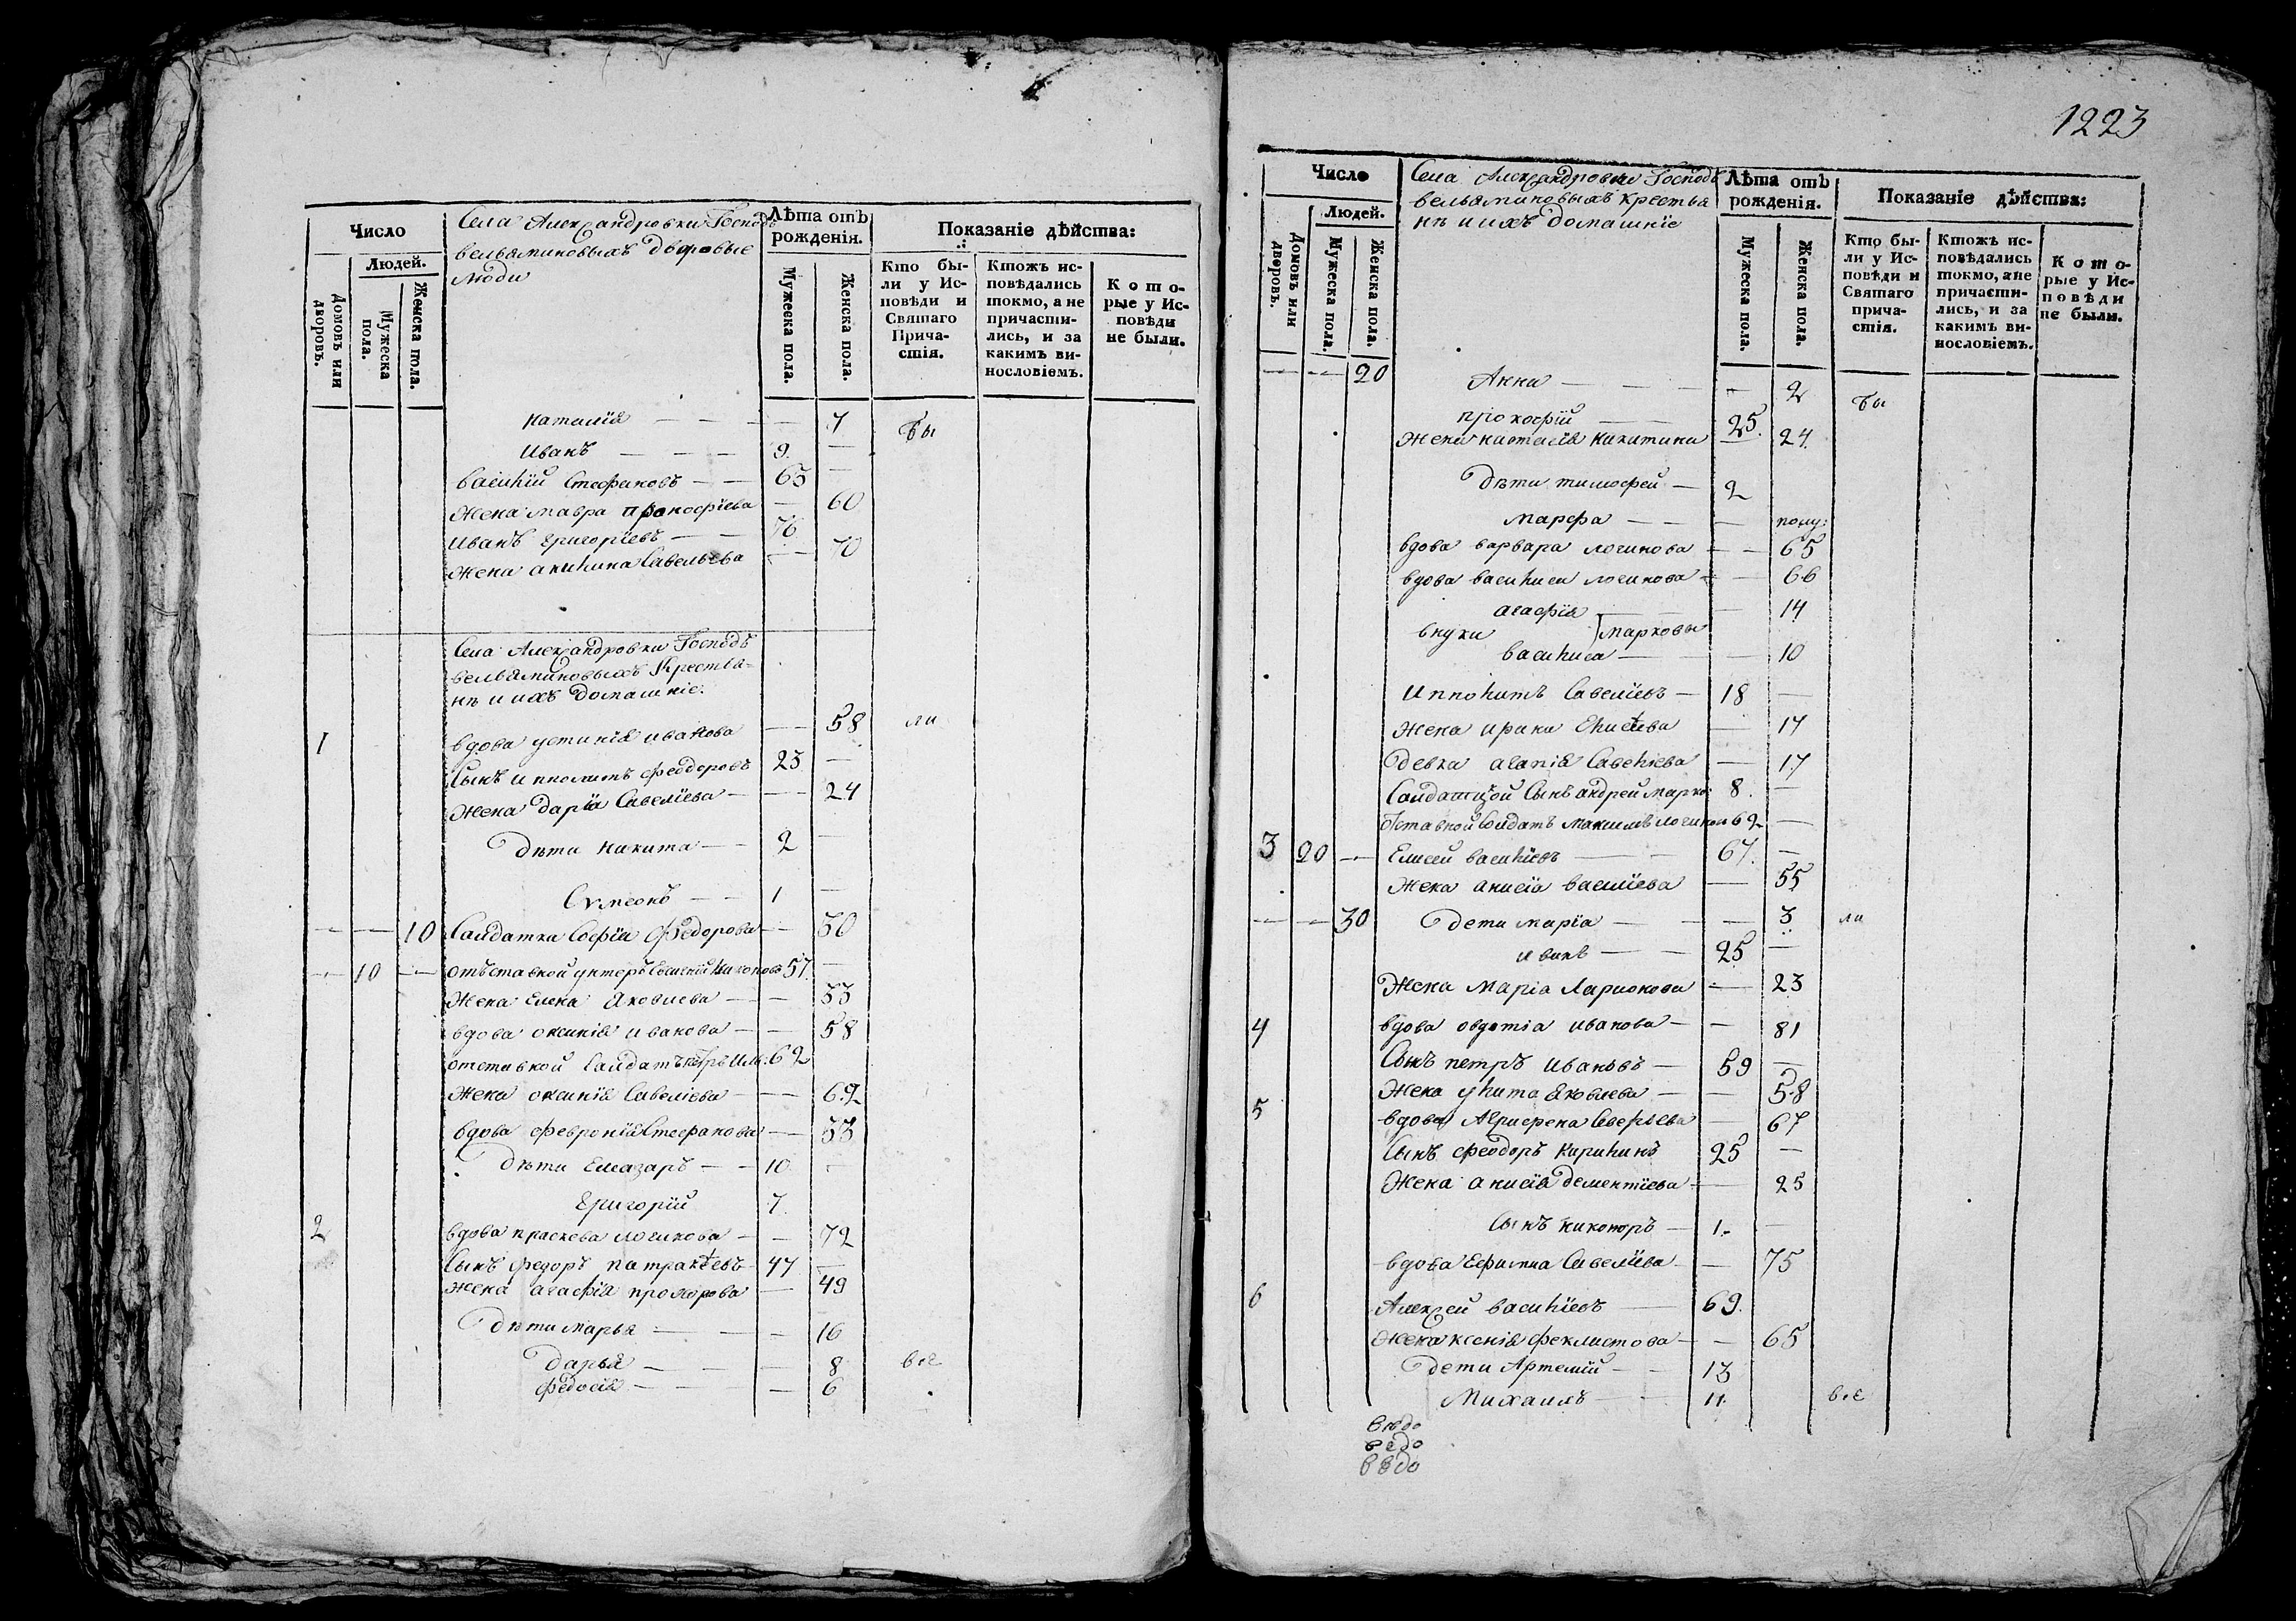 Число
Людей.
Домовъ или дворовъ.
Мужеска пола.
Женска пола.
Села Александровки Господъ
вельяминовыхъ дворовые
люди
Лѣта отъ рожденія.
Мужеска пола.
Женска пола.
Показаніе дѣйства:
Кто бы-
ли у Ис-
повѣди и
Святаго
Прича-
стія.
Ктожъ ис-
повѣдались
токмо, а не
причасти-
лись, и за
какимъ ви-
нословіемъ.
Кото-
рые у Ис-
повѣди
не были.
наталія — — — 7 бы
Иванъ — — — 9. —
василій Стефановъ — — 63 —
Жена мавра прокофіева — 60
Иванъ григоріевъ — — 76
Жена акилина Савельева — 70
Села Александровки Господъ
вельяминовыхъ Крестья-
нѣ и ихъ домашніе.
1 вдова устинія иванова — 58 ли
Сынъ ипполитъ феодоровъ 23 —
Жена дарія Савеліева — — 24
Дѣти никита — — 2 —
Сѵмеонъ — — 1 —
— — 10 Салдатка Софія Федорова — 30
— 10 — отъставной унтеръ 57. —
Жена Елена Яковлева — — 33
вдова оксинія иванова — — 58
отставной Салдатъ 62
Жена оксинія Савеліева — — 62
вдова февронія Стефанова — 33
Дѣти Елиазаръ — — 10. —
григорій 7.
2 вдова праскева логинова — — 72
Сынъ федоръ патракѣевъ 47 —
Жена агафія прохорова — 49
Дѣти марья — — — 16
дарья — — — 8 все
федосія — — — 6
1223
Число
Людей.
Домовъ или дворовъ.
Мужеска пола.
Женска пола.
Села Александровки Господъ
вельяминовыхъ крестья
нѣ и ихъ домашніе
Лѣта отъ рожденія.
Мужеска пола.
Женска пола.
Показаніе дѣйства:
Кто бы-
ли у Ис-
повѣди и
Святаго
прича-
стія.
Ктожъ ис-
повѣдались
токмо, а не
причасти-
лись, и за
какимъ ви-
нословіемъ.
Кото-
рые у Ис-
повѣди
не были.
— — 20 Анна — — — — 2 бы
прокофій — — 25.
Жена настасія никитина — 24.
Дѣти тимофей — 2
марфа — — — полу:
вдова варвара логинова — — 65
вдова василиса логинова — — 66
агафія — — — 14
внуки марковы
василиса — — 10
ипполитъ Савеліевъ — 18 —
Жена ирина Елисѣева — 17
девка агапія Савеліева — 17
Салдатской Сынъ андрей марко: 8. —
отставной Солдатъ максимъ логинов 62 —
3 20 — Елисей василіевъ — — 67. —
Жена анисія василіева — 55
— — 30 дети марія — — — 3 ли
иванъ — — 25 —
Жена марія Ларионова — 23
4 вдова овдотіа иванова — — 81
Сынъ петръ ивановъ — 59 —
Жена улита Яковлева — — 58
5 вдова Агриფена Северъева — 67
Сынъ феодоръ кирилинъ 25 —
Жена анисія дементіева — 25
Сынъ никоноръ — 1. —
вдова Ефимиа Савеліева — — 75
6 Алексей василіевъ — 69.
Жена ксенія феклистова — — 65
дети Артемій — — 13
Михаилъ — — 11. все
вѣдо
ведо
ведо